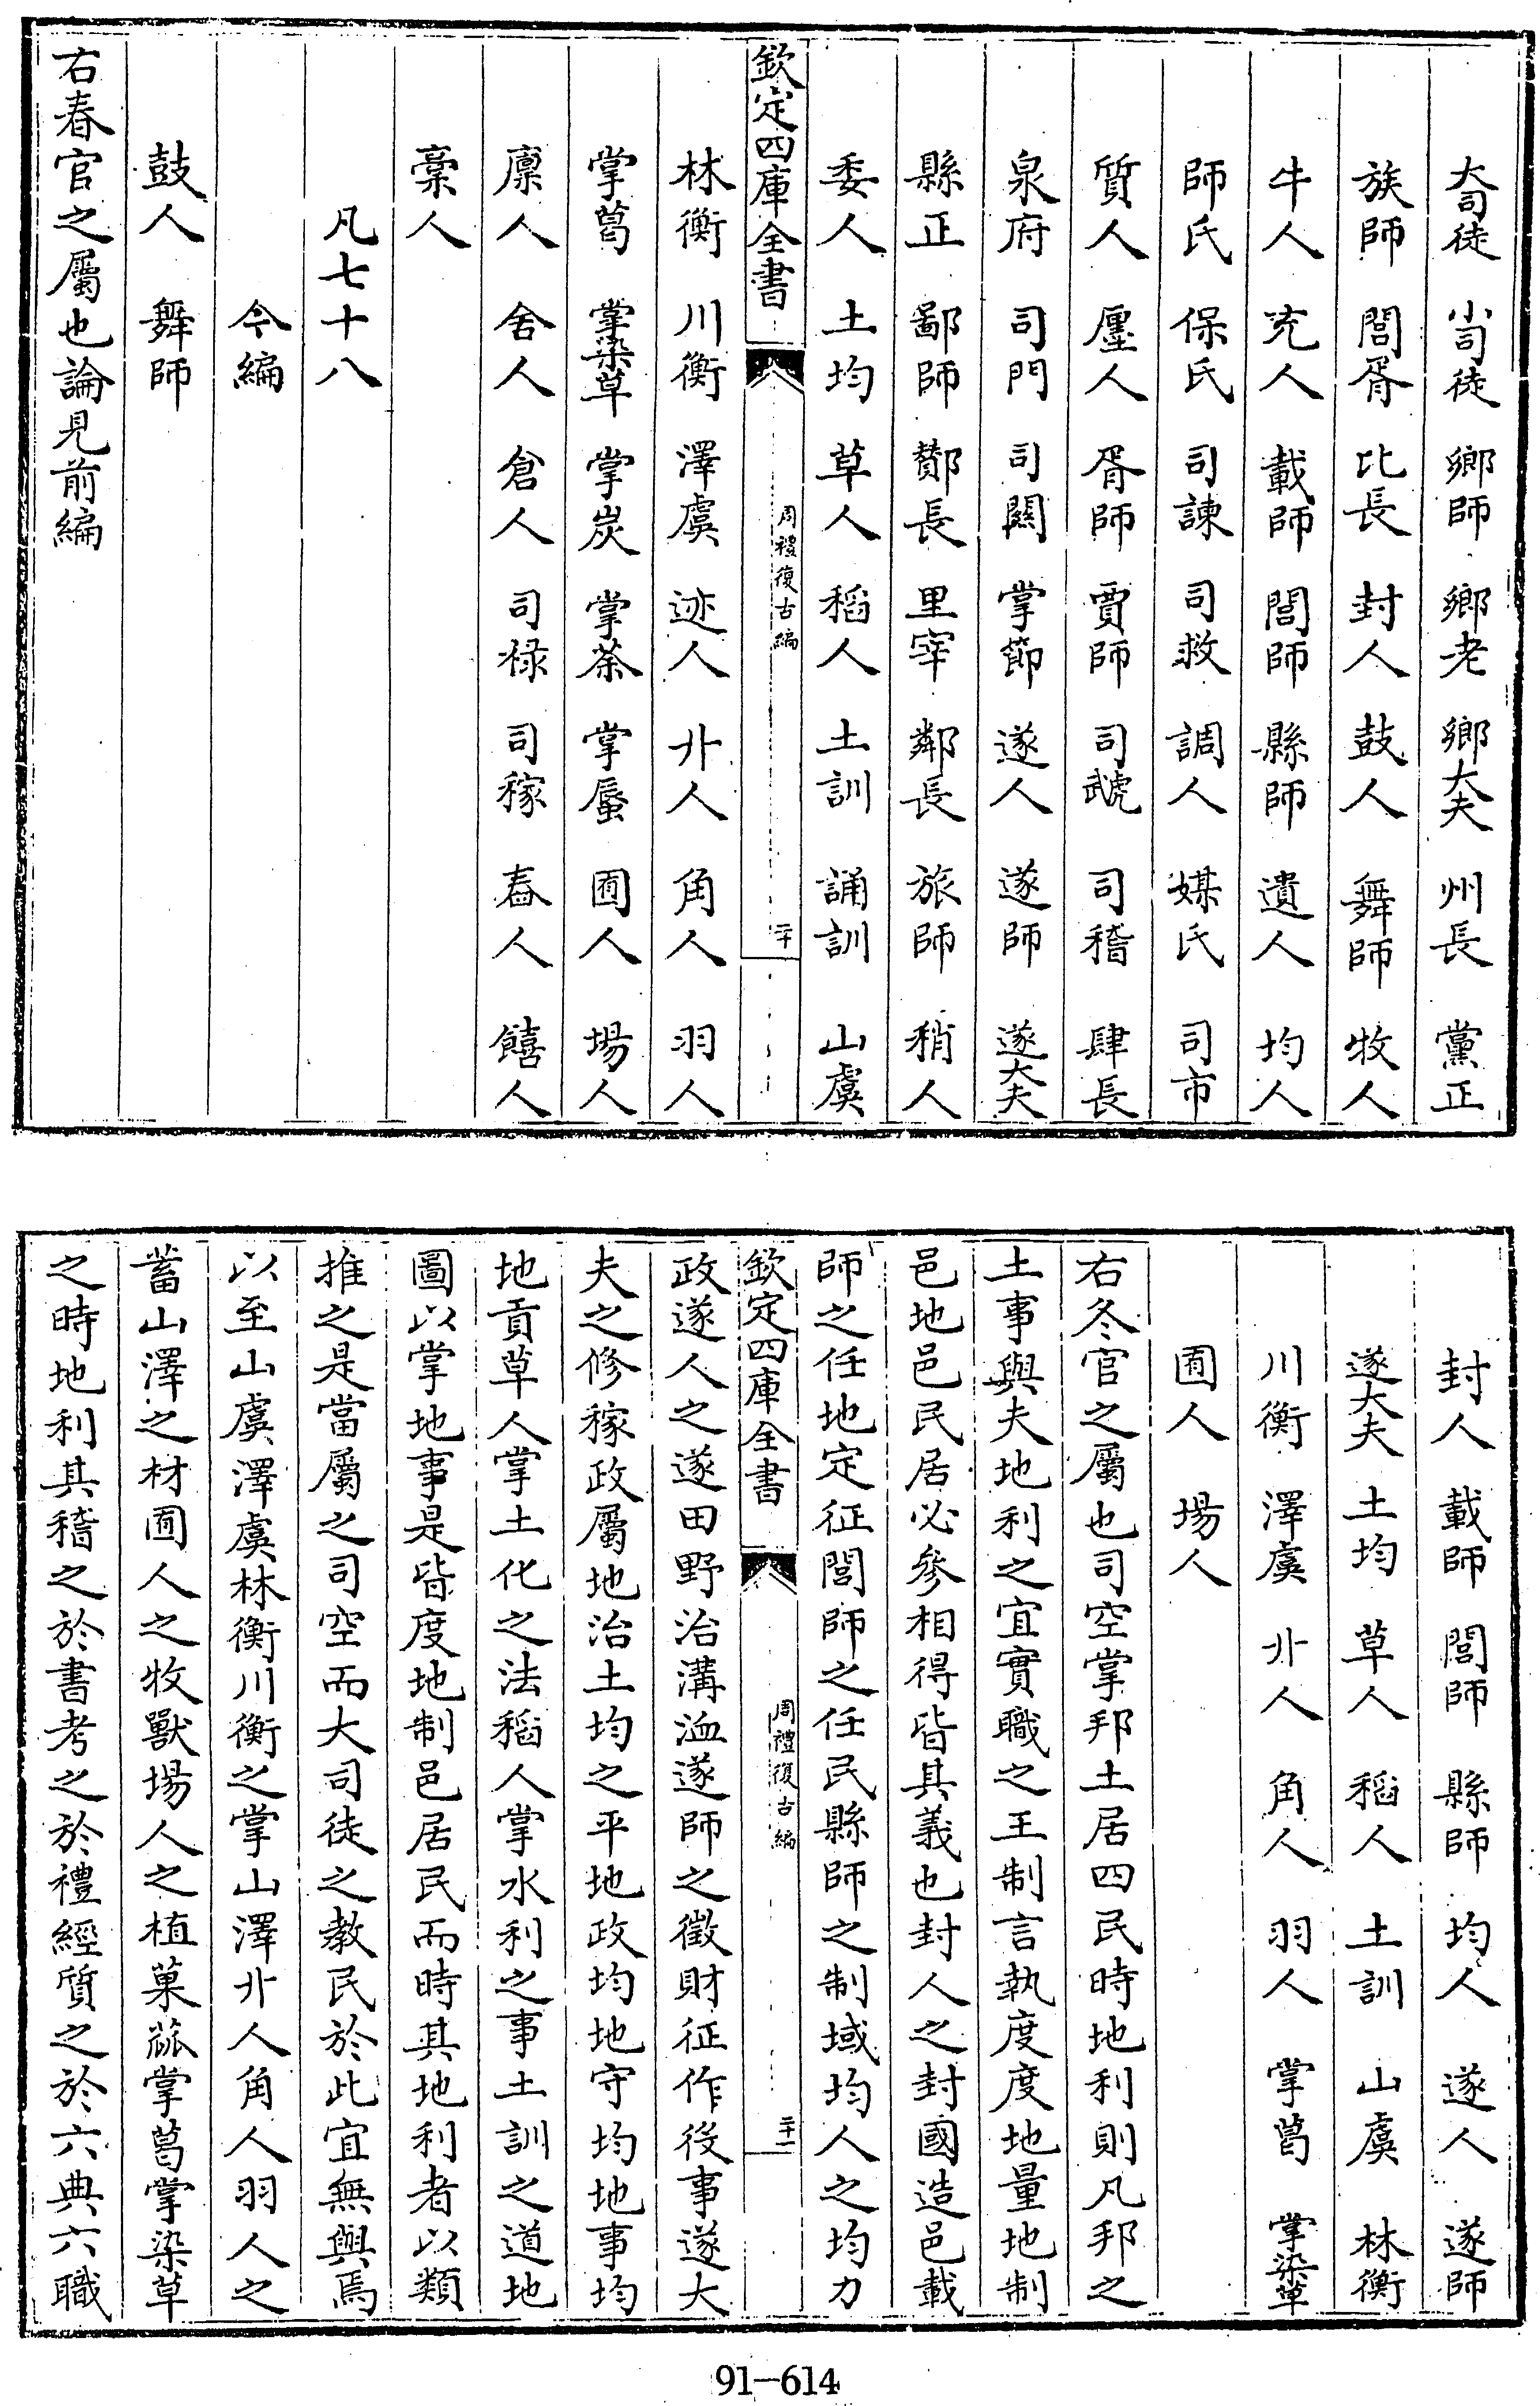 大司徒　小司徒　鄉師　鄉老　鄉大夫　州長　黨正
族師　閭胥　比長　封人　鼓人　舞師　牧人
牛人　充人　載師　閭師　縣師　遺人　均人
師氏　保氏　司諫　司救　調人　媒氏　司市
質人　廛人　胥師　賈師　司虣　司稽　肆長
泉府　司門　司關　掌節　遂人　遂師　遂大夫
縣正　鄙師　酇長　里宰　鄰長　旅師　稍人
委人　土均　草人　稻人　土訓　誦訓　山虞
欽定四庫全書　周禮復古編　二十
林衡　川衡　澤虞　迹人　丱人　角人　羽人
掌葛　掌染草　掌炭　掌荼　掌蜃　囿人　場人
廩人　舍人　倉人　司祿　司稼　舂人　饎人
槀人
凡七十八
今編
鼓人　舞師
右春官之屬也論見前編
封人　載師　閭師　縣師　均人　遂人　遂師
遂大夫　土均　草人　稻人　土訓　山虞　林衡
川衡　澤虞　丱人　角人　羽人　掌葛　掌染草
囿人　場人
右冬官之屬也司空掌邦土居四民時地利則凡邦之
土事與夫地利之宜實職之王制言執度度地量地制
邑地邑民居必參相得皆其義也封人之封國造邑載
師之任地定征閭師之任民縣師之制域均人之均力
欽定四庫全書　周禮復古編　二十一
政遂人之遂田野治溝洫遂師之徵財征作役事遂大
夫之修稼政屬地治土均之平地政均地守均地事均
地貢草人掌土化之法稻人掌水利之事土訓之道地
圖以掌地事是皆度地制邑居民而時其地利者以類
推之是當屬之司空而大司徒之教民於此宜無與焉
以至山虞澤虞林衡川衡之掌山澤丱人角人羽人之
蓄山澤之材囿人之牧獸場人之植菓蓏掌葛掌染草
之時地利其稽之於書考之於禮經質之於六典六職
91—614